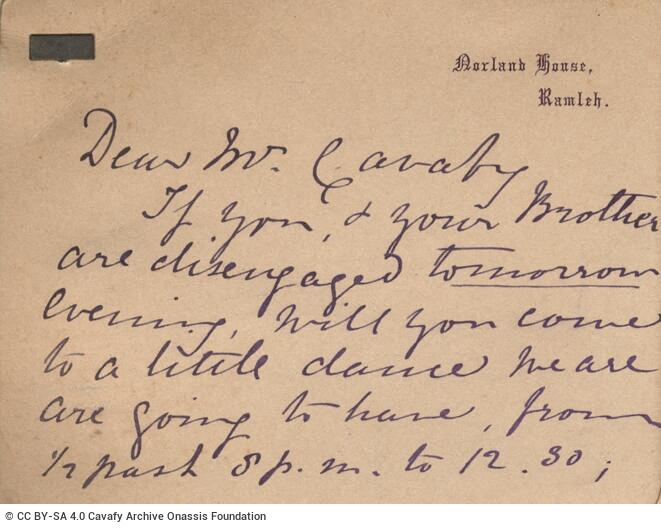 Norland House,
Ramleh.
Dear Mr. Cavafy
If you, & your Brother
are disengaged tomorrow
evening, will you come
to a little dance we are
are going to have, from
1/2 past 8 p.m. to 12.30;
© CC BY-SA 4.0 Cavafy Archive Onassis Foundation